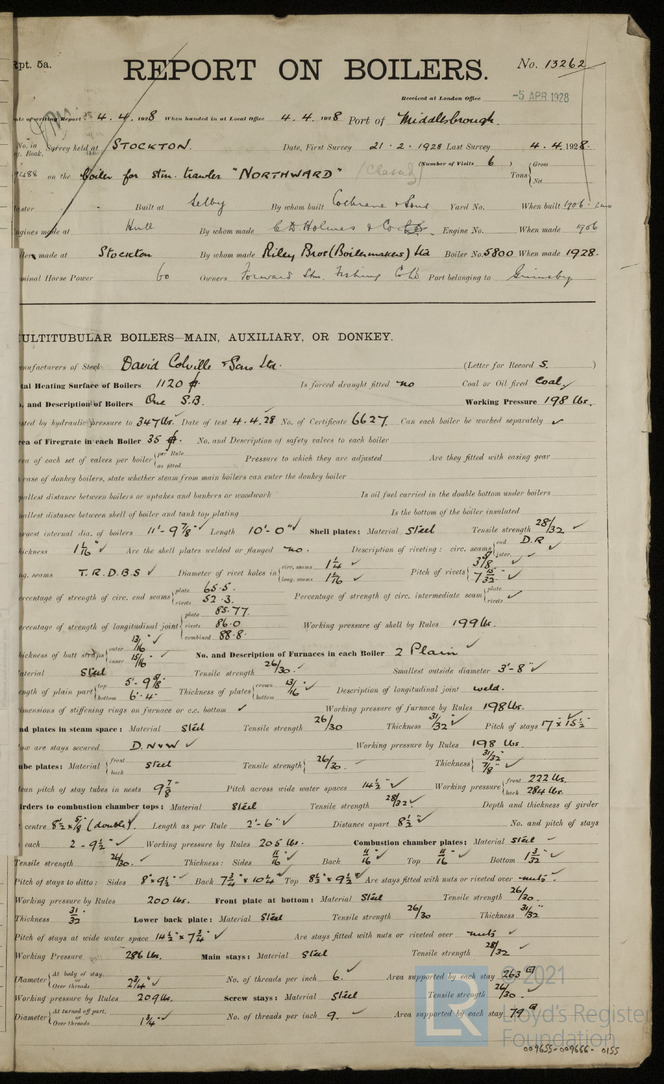 Rpt. 5a.
REPORT ON BOILERS.
No. 13262
Received at London Office -5 APR 1928
Date of writing Report 4. 4. 1928 When handed in at Local Office 4. 4. 1928 Port of Middlesbrough.
No. in Survey held at STOCKTON. Date, First Survey 21. 2. 1928 Last Survey 4. 4. 1928.
Reg. Book. (Number of Visits 6 )
on the Boiler for stm. trawler "NORTHWARD" (Classed) Tons { Gross Net
Master - Built at Selby By whom built Cochrane & Sons Yard No. When built 1906
Engines made at Hull By whom made C D Holmes & Co Ltd. Engine No. When made 1906
Boilers made at Stockton By whom made Riley Bros (Boilermakers) Ltd Boiler No. 5800 When made 1928.
Nominal Horse Power 60 Owners Forward Stm. Fishing Co Ld Port belonging to Grimsby
MULTITUBULAR BOILERS—MAIN, AUXILIARY, OR DONKEY.
Manufacturers of Steel David Colville & Sons Ltd. (Letter for Record S. )
Total Heating Surface of Boilers 1120 Is forced draught fitted no Coal or Oil fired Coal
No. and Description of Boilers One S.B. Working Pressure 198 lbs.
Tested by hydraulic pressure to 347 lbs. Date of test 4.4.28 No. of Certificate 6627 Can each boiler be worked separately ✓
Area of Firegrate in each Boiler 35 No. and Description of safety valves to each boiler
Area of each set of valves per boiler { per Rule as fitted Pressure to which they are adjusted Are they fitted with easing gear
In case of donkey boilers, state whether steam from main boilers can enter the donkey boiler
Smallest distance between boilers or uptakes and bunkers or woodwork Is oil fuel carried in the double bottom under boilers
Smallest distance between shell of boiler and tank top plating Is the bottom of the boiler insulated
Largest internal dia. of boilers 11'-9 7/8" ✓ Length 10'-0" ✓ Shell plates: Material Steel Tensile strength 28/32 ✓
Thickness 1 1/16" ✓ Are the shell plates welded or flanged no. Description of riveting: circ. seams { end D.R inter. ✓
long. seams T.R.D.B.S ✓ Diameter of rivet holes in { circ. seams 1 1/4 long. seams 1 1/16 ✓ Pitch of rivets { 3 7/8 7 15/32 ✓
Percentage of strength of circ. end seams { plate 65.5. rivets 52.3. Percentage of strength of circ. intermediate seam { plate rivets ✓
Percentage of strength of longitudinal joint { plate 85.77. rivets 86.0 combined 88.8. Working pressure of shell by Rules 199 lbs.
Thickness of butt straps { outer 13/16 inner 15/16 ✓ No. and Description of Furnaces in each Boiler 2 Plain ✓
Material Steel Tensile strength 26/30. ✓ Smallest outside diameter 3'-8" ✓
Length of plain part { top 5'-9 5/8 bottom 6'-4" Thickness of plates { crown bottom 13/16 ✓ Description of longitudinal joint weld.
Dimensions of stiffening rings on furnace or c.c. bottom ✓ Working pressure of furnace by Rules 198 lbs.
End plates in steam space: Material Steel Tensile strength 26/30 Thickness 31/32 ✓ Pitch of stays 17" x 15 1/2"
How are stays secured D. N & W ✓ Working pressure by Rules 198 lbs
Tube plates: Material { front back Steel Tensile strength { 26/30. Thickness { 31/32 7/8 ✓
Mean pitch of stay tubes in nests 9 7/8 Pitch across wide water spaces 14 1/2" ✓ Working pressure { front 222 lbs. back 284 lbs.
Girders to combustion chamber tops: Material Steel Tensile strength 28/32 ✓ Depth and thickness of girder
at centre 8 1/2 x 5/8 (double). Length as per Rule 2'-6" ✓ Distance apart 8 1/2" ✓ No. and pitch of stays
in each 2 - 9 1/2" ✓ Working pressure by Rules 205 lbs. Combustion chamber plates: Material Steel ✓
Tensile strength 26/30. ✓ Thickness: Sides 11/16" ✓ Back 11/16 ✓ Top 11/16 ✓ Bottom 1 3/32 ✓
Pitch of stays to ditto: Sides 8" x 9 1/2 ✓ Back 7 3/4 x 10 1/4 ✓ Top 8 1/2 x 9 1/2 ✓ Are stays fitted with nuts or riveted over nuts ✓
Working pressure by Rules 200 lbs. Front plate at bottom: Material Steel Tensile strength 26/30.
Thickness 31/32 Lower back plate: Material Steel Tensile strength 26/30 Thickness 31/32 ✓
Pitch of stays at wide water space 14 1/2" x 7 3/4" ✓ Are stays fitted with nuts or riveted over nuts ✓
Working Pressure 286 lbs. Main stays: Material Steel Tensile strength 28/32 ✓
Diameter { At body of stay, or Over threads 2 3/4" ✓ No. of threads per inch 6. ✓ Area supported by each stay 263
Working pressure by Rules 209 lbs. Screw stays: Material Steel Tensile strength 26/30. ✓
Diameter { At turned off part, or Over threads 1 3/4" ✓ No. of threads per inch 9. ✓ Area supported by each stay 79
LR
2021
Lloyd's Register
Foundation
009655-009666-0155